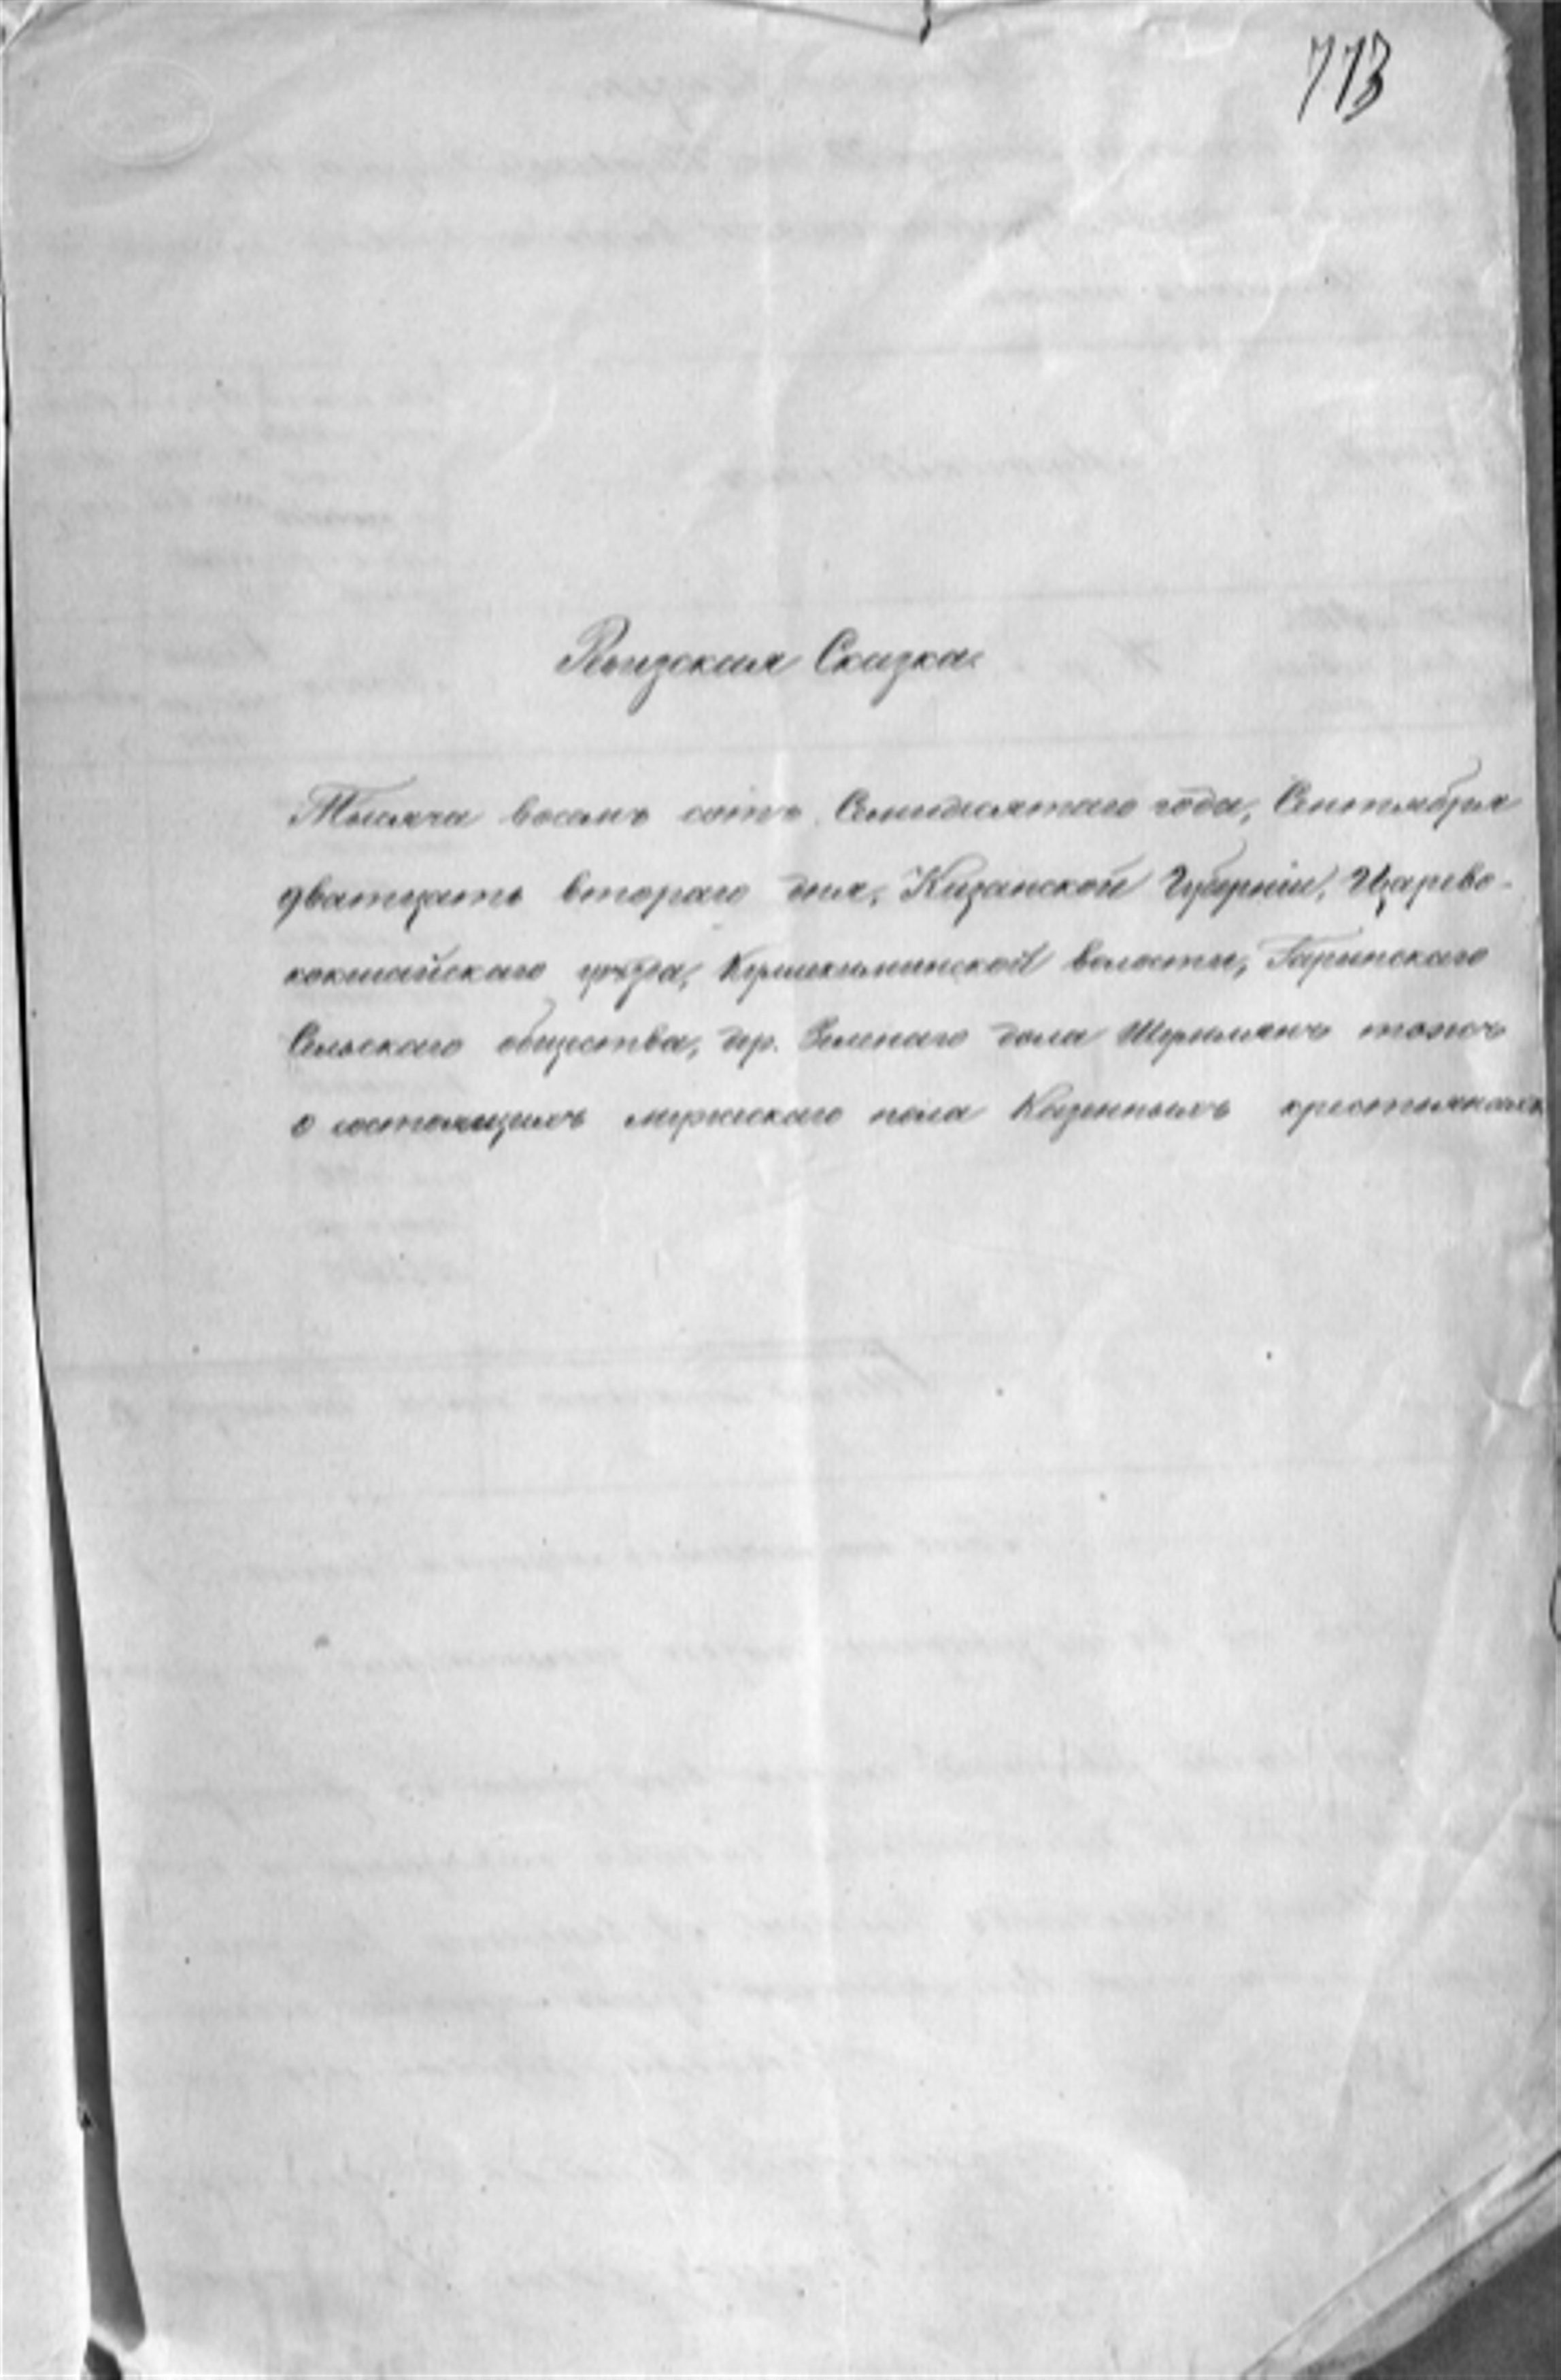 773
Ревизская Сказка.
Тысяча восемь сотъ Семидесятаго года, Сентября
дватцать втораго дня, Казанской Губерніи, Царево-
кокшайскаго уѣзда, волости,
Сельскаго общества, дер. Зеленаго дола тожъ
о состоящихъ мужескаго пола Казенныхъ крестьянахъ